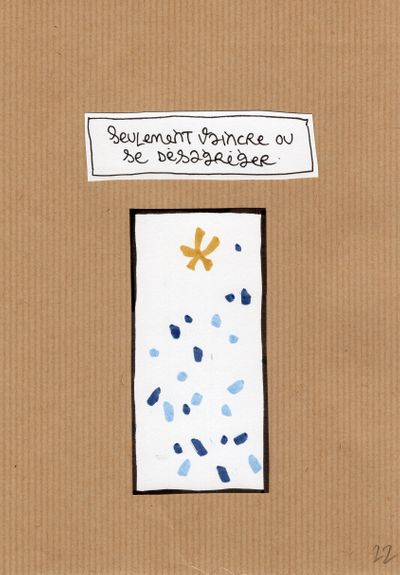 SEULEMENT VAINCRE OU
SE DÉSAGRÉGER.
22